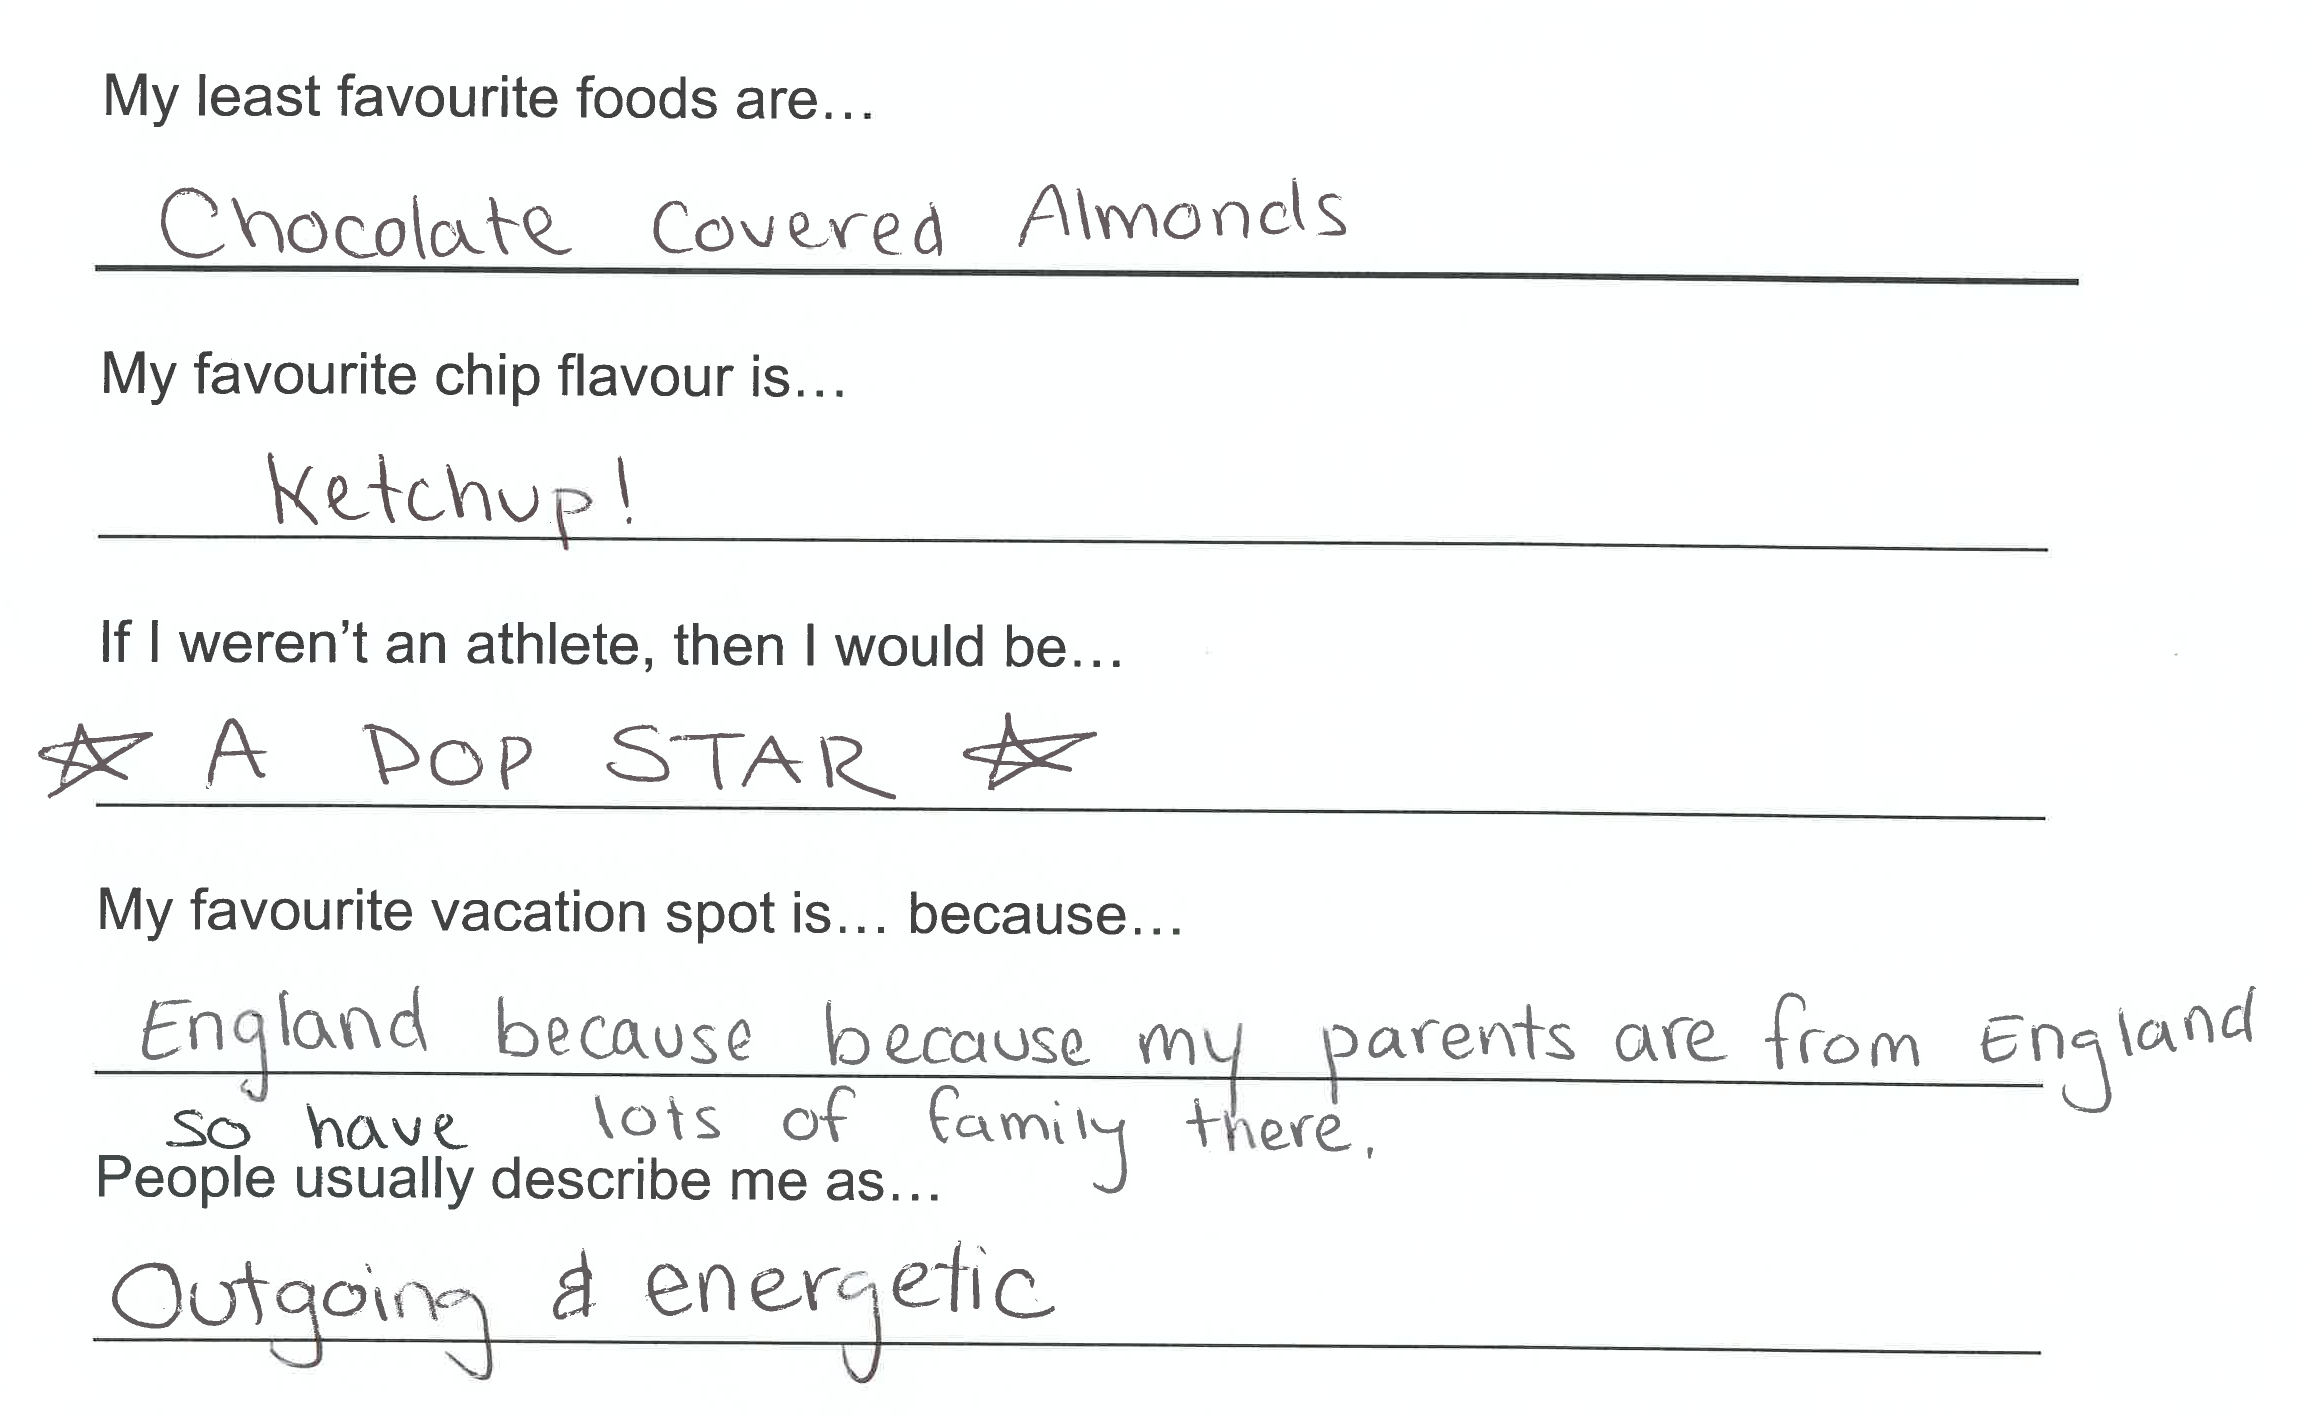 My least favourite foods are...
Chocolate Covered Almonds
My favourite chip flavour is...
Ketchup!
If I weren't an athlete, then I would be...
☆ A POP STAR ☆
My favourite vacation spot is... because...
England because because my parents are from England
so have lots of family there.
People usually describe me as...
Outgoing & energetic